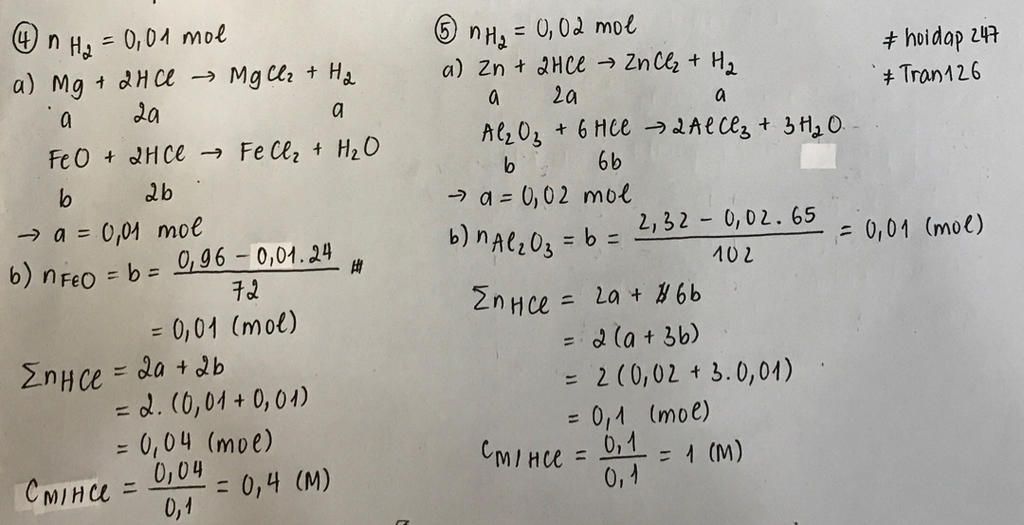 ④ n H₂ = 0,01 mol
a) Mg + 2HCl → MgCl₂ + H₂
a 2a a
FeO + 2HCl → FeCl₂ + H₂O
b 2b
→ a = 0,01 mol
b) n FeO = b = (0,96 - 0,01.24) / 72
= 0,01 (mol)
Σn HCl = 2a + 2b
= 2.(0,01 + 0,01)
= 0,04 (mol)
C M/HCl = 0,04 / 0,1 = 0,4 (M)
⑤ n H₂ = 0,02 mol
a) Zn + 2HCl → ZnCl₂ + H₂
a 2a a
Al₂O₃ + 6HCl → 2AlCl₃ + 3H₂O
b 6b
→ a = 0,02 mol
b) n Al₂O₃ = b = (2,32 - 0,02.65) / 102 = 0,01 (mol)
Σn HCl = 2a + 6b
= 2(a + 3b)
= 2(0,02 + 3.0,01)
= 0,1 (mol)
C M/HCl = 0,1 / 0,1 = 1 (M)
# hoidap 247
# Tran126